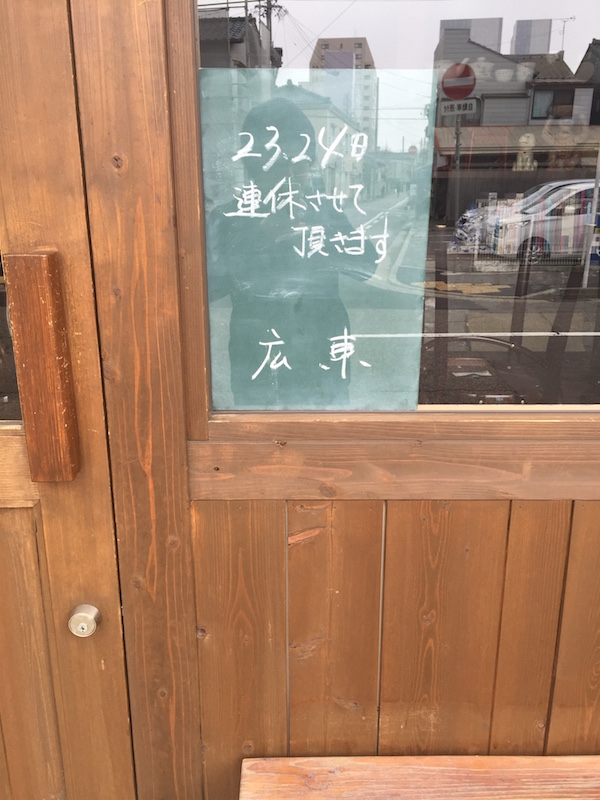 23、24日
連休させて
頂きます
広東